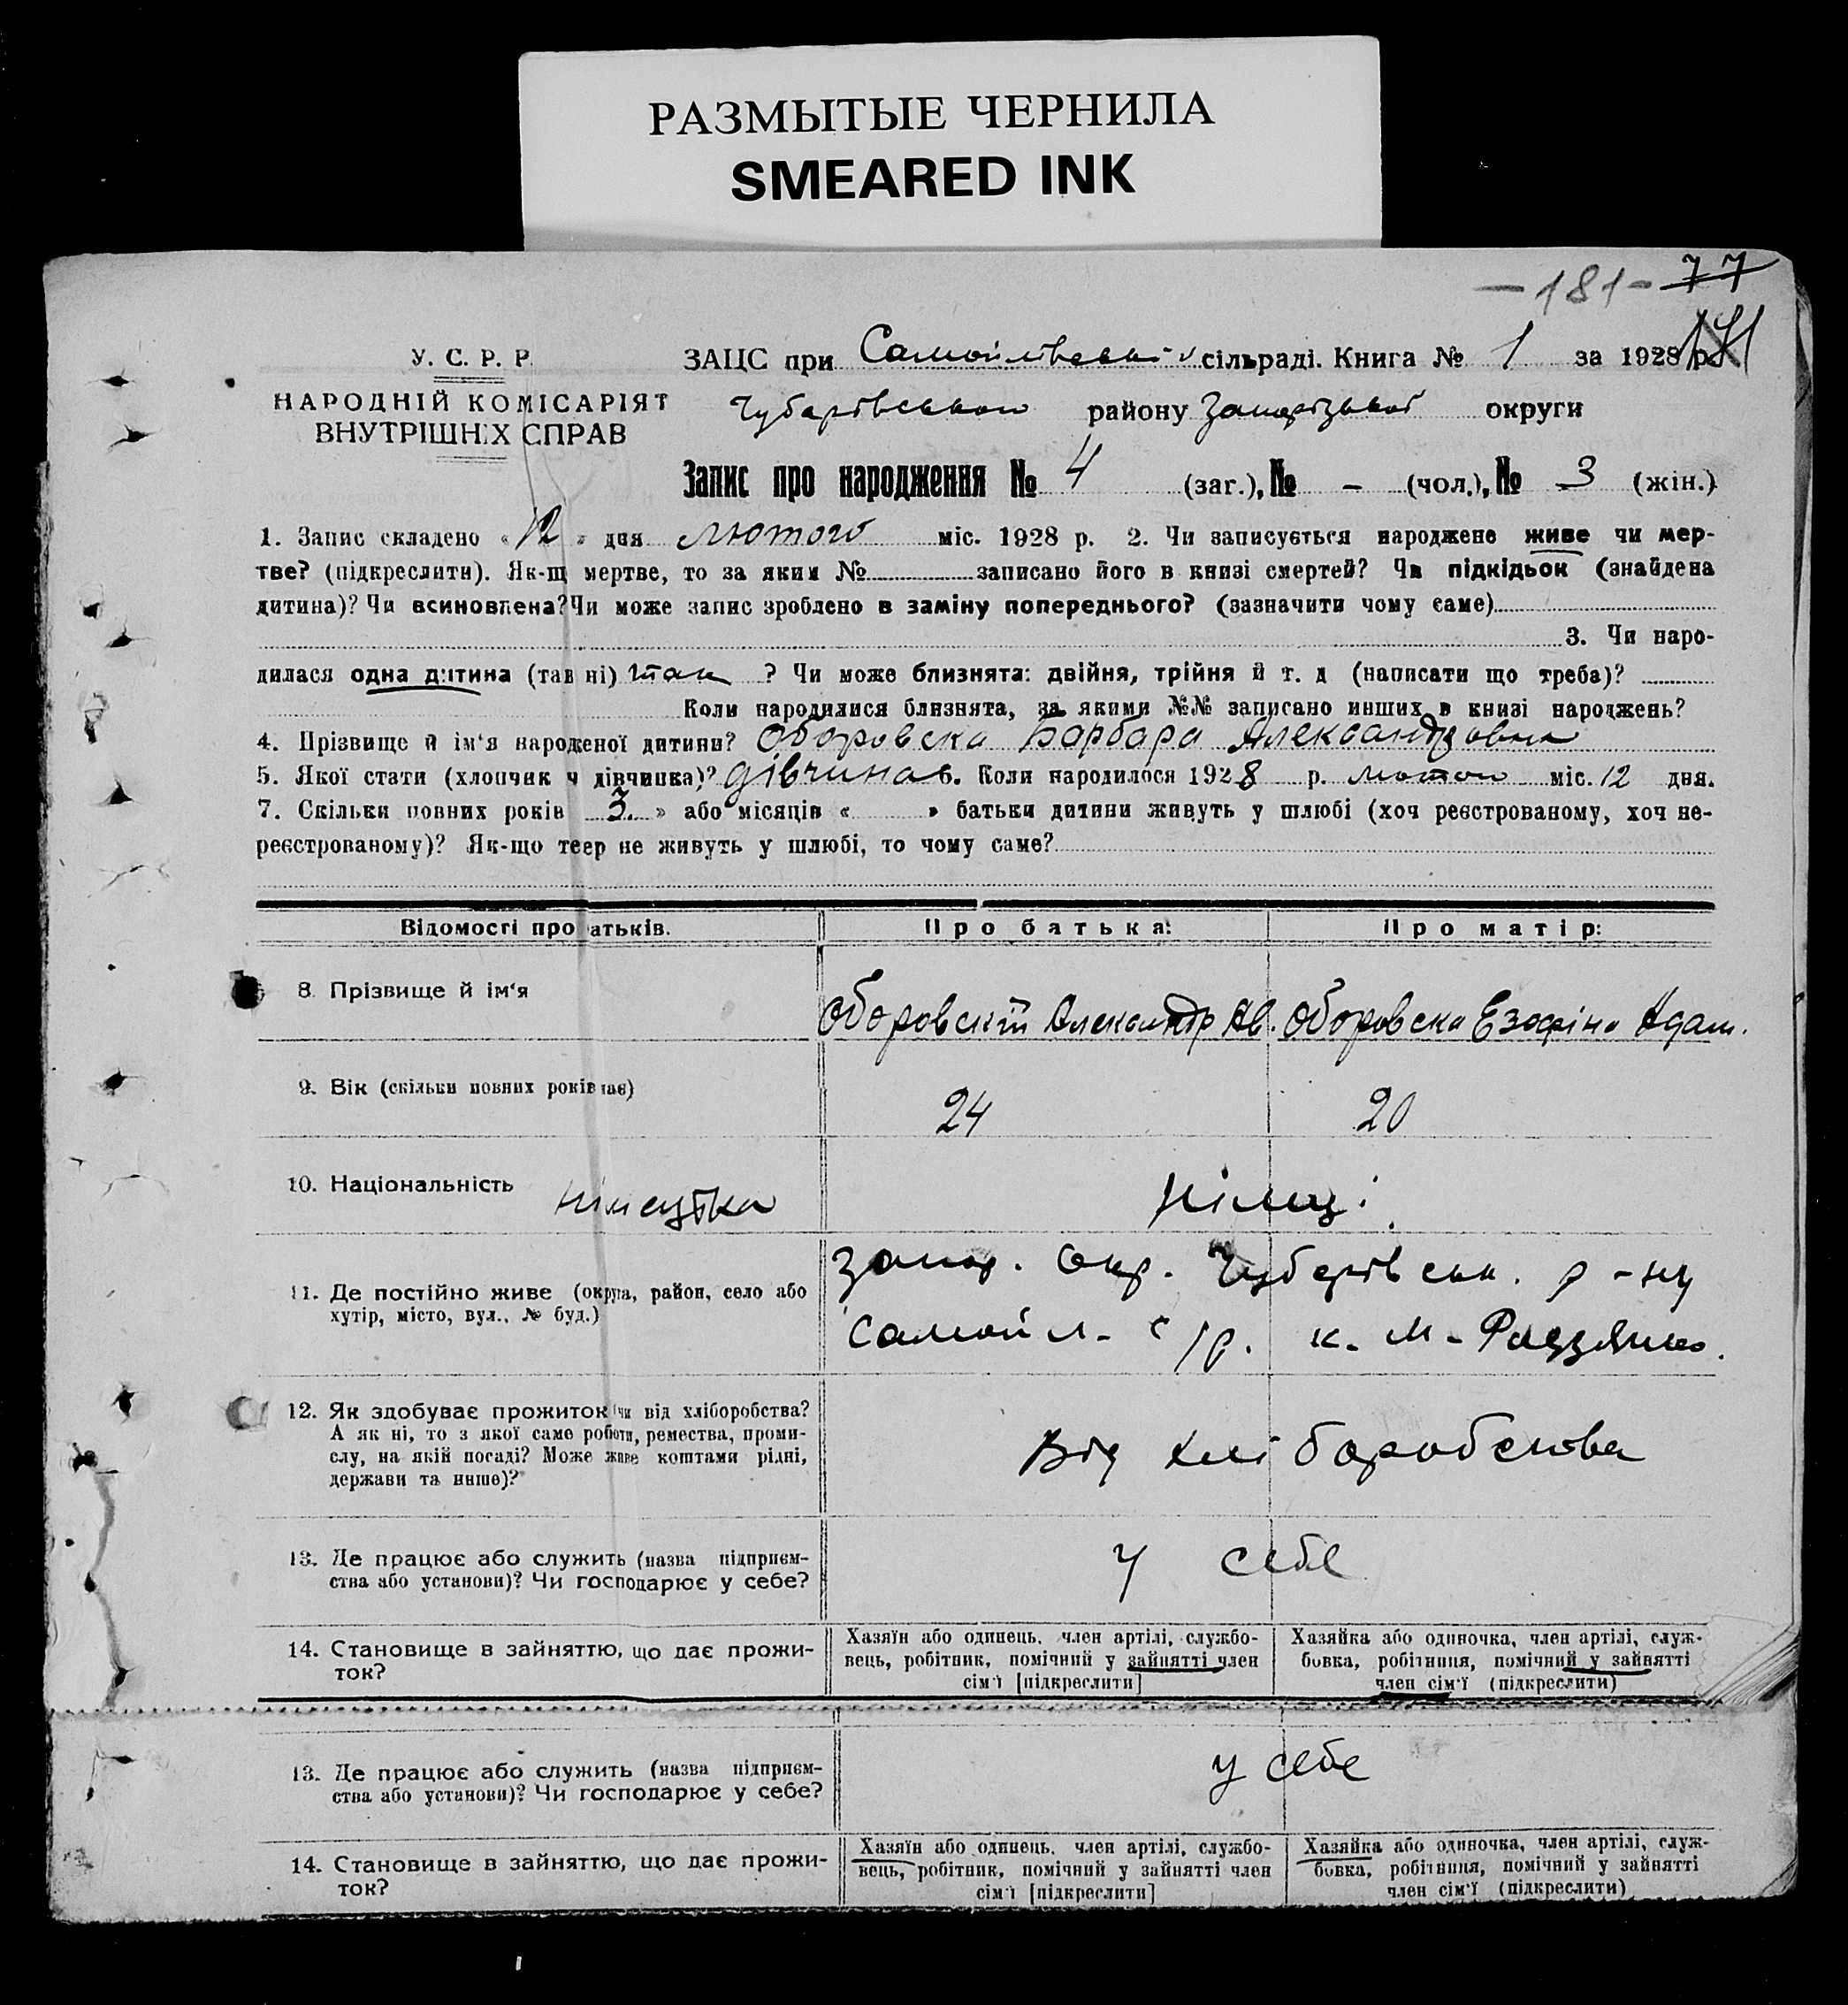 РАЗМЫТЫЕ ЧЕРНИЛА
SMEARED INK
– 181 – 77
У. С. Р. Р.
НАРОДНІЙ КОМІСАРІЯТ
ВНУТРІШНІХ СПРАВ
ЗАЦС при Самойлівській сільраді. Книга № 1 за 1928 р.
Чубарівського району Запорізької округи
Запис про народження № 4 (заг.), № – (чол.), № 3 (жін.)
1. Запис складено «12» дня лютого міс. 1928 р. 2. Чи записується народжене живе чи мер-
тве? (підкреслити). Як-щ мертве, то за яким № записано його в книзі смертей? Чи підкідьок (знайдена
дитина)? Чи всиновлена? Чи може запис зроблено в заміну попереднього? (зазначити чому саме)
3. Чи наро-
дилася одна дитина (так ні) так ? Чи може близнята: двійня, трійня й т. д (написати що треба)?
Коли народилися близнята, за якими №№ записано инших в книзі народжень?
4. Прізвище й ім'я народженої дитини? Оборовска Барбара Александровна
5. Якої стати (хлопчик ч дівчинка)? дівчина 6. Коли народилося 1928 р. лютого міс. 12 дня.
7. Скільки повних років 3. » або місяців « » батьки дитини живуть у шлюбі (хоч реєстрованому, хоч не-
реєстрованому)? Як-що теер не живуть у шлюбі, то чому саме?
Відомості про атьків. Про батька: Про матір:
8. Прізвище й ім'я Оборовский Александр Ав. Оборовска Езофіна Адам.
9. Вік (скільки повних років має) 24 20
10. Національність німецька німці
11. Де постійно живе (округа, район, село або
хутір, місто, вул., № буд.)
Запор. Окр. Чубарівськ. р-ну
Самойл- с/р. к. М-
12. Як здобуває прожиток чи від хліборобства?
А як ні, то з якої саме роботи, ремества, проми-
слу, на якій посаді? Може живе коштами рідні,
держави та инше)?
Від хліборобства
13. Де працює або служить (назва підприєм-
ства або установи)? Чи господарює у себе?
У себе
14. Становище в зайняттю, що дає прожи-
ток?
Хазяїн або одинець, член артілі, службо-
вець, робітник, помічний у зайнятті член
сім'ї [підкреслити]
Хазяйка або одиночка, член артілі, служ-
бовка, робітниця, помічний у зайнятті
член сім'ї (підкреслити)
13. Де працює або служить (назва підприєм-
ства або установи)? Чи господарює у себе?
у себе
14. Становище в зайняттю, що дає прожи-
ток?
Хазяїн або одинець, член артілі, службо-
вець, робітник, помічний у зайнятті член
сім'ї [підкреслити]
Хазяйка або одиночка, член артілі, служ-
бовка, робітниця, помічний у зайнятті
член сім'ї (підкреслити)